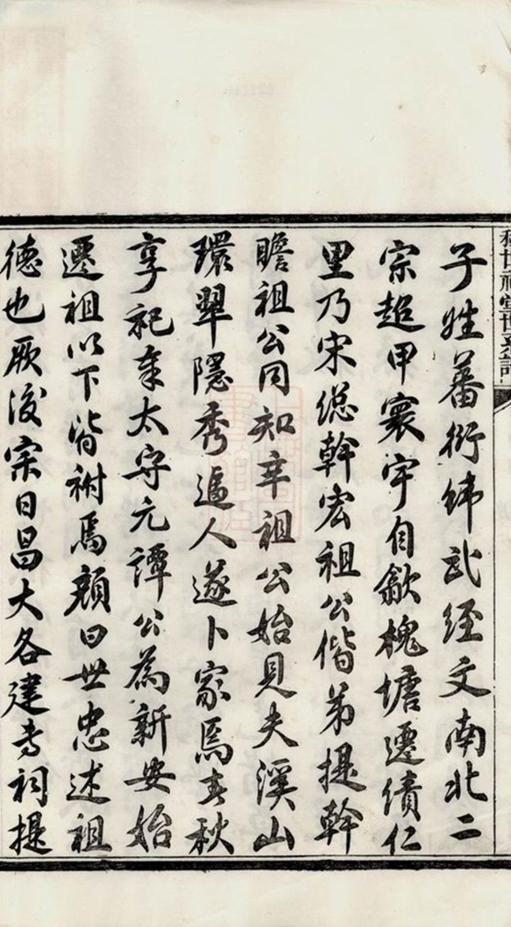 子姓蕃衍緯武經文南北二
宗超甲寰宇自歙槐塘遷績仁
里乃宋總幹宏祖公偕弟提幹
瞻祖公同知辛祖公始見夫溪山
環翠隱秀逼人遂卜家焉春秋
享祀奉太守元譚公為新安始
遷祖以下皆祔焉顏曰世忠述祖
德也厥後宗日昌大各建專祠提